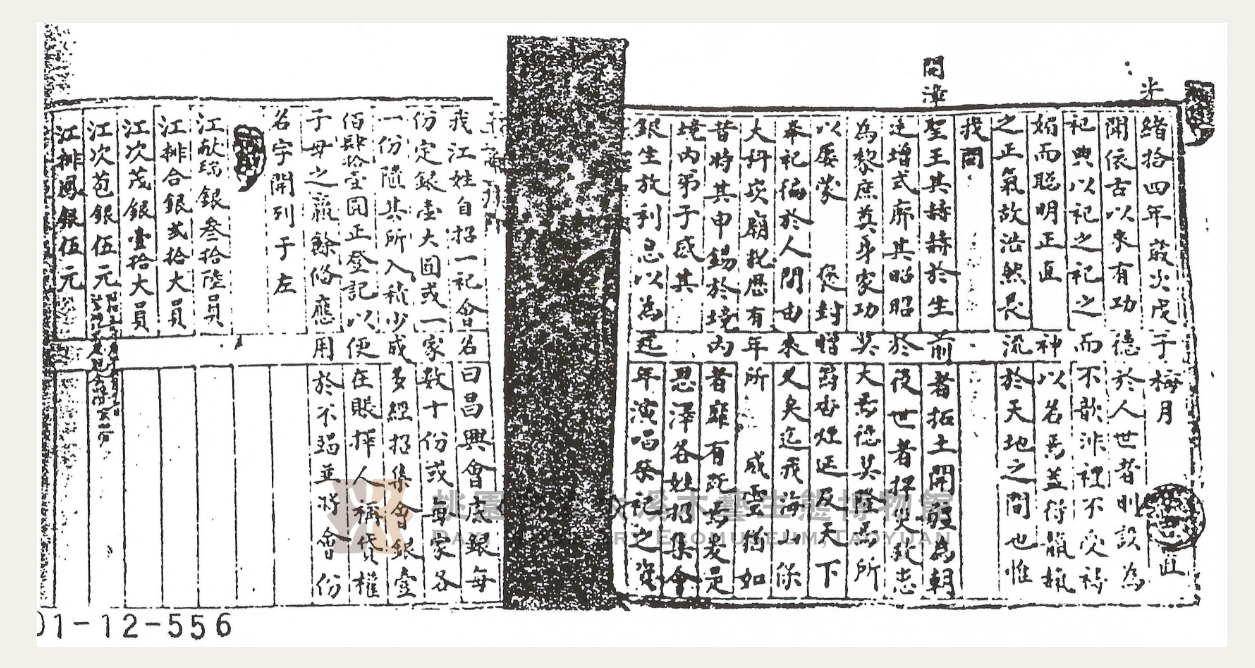 光緒拾四年菽火戊子梅月
聞依古以來有功德於人世者則設為
祀典以祀之祀之而不歆非禋不受禱
媚而聰明正直神以名焉蓋得
之正氣故浩然長流於天地之間也惟
我開
開漳聖王其赫赫於生前者拓土開疆為朝
廷增式廓其昭昭於後世者捍災致忠
為黎庶奠身家功莫大焉德莫隆焉所
以屢蒙褒封增爵香煙延及天下
奉祀徧於人間由來久矣迄我海山保
大科崁廟祀歷有年所威靈猶如
昔時其申錫於境內者靡有既焉爰是
境內弟子感其恩澤各姓招集會
銀生放利息以為逐年演唱祭祀之資
我江姓自招一祀會名曰昌興會底銀每
份定銀壹大圓或一家數十份或每家各
一份隨其所入稀少成多經招集會銀壹
佰肆拾壹圓正登記以便在賬擇人稱貸權
子母之贏餘俻應用於不竭並將會份
名字開列于左
江献瑞銀叁拾陸員
江排合銀貳拾大員
江次茂銀壹拾大員
江次苞銀伍元
江排鳳銀伍元
01-12-556